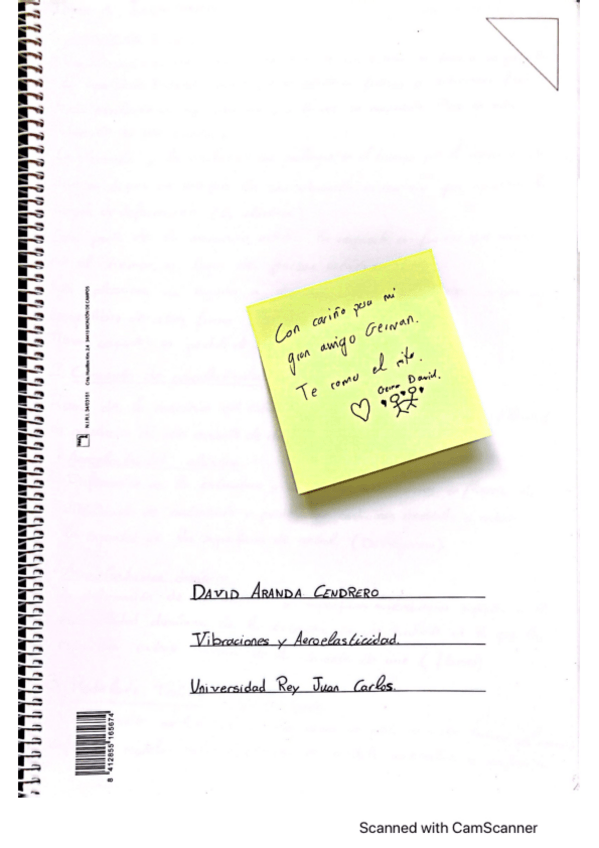 Con cariño para mi
gran amigo German.
Te como el
David.
N.I.R.I. 34/03181
DAVID ARANDA CENDRERO
Vibraciones y Aeroelasticidad.
Universidad Rey Juan Carlos.
8 412855 165674
Scanned with CamScanner